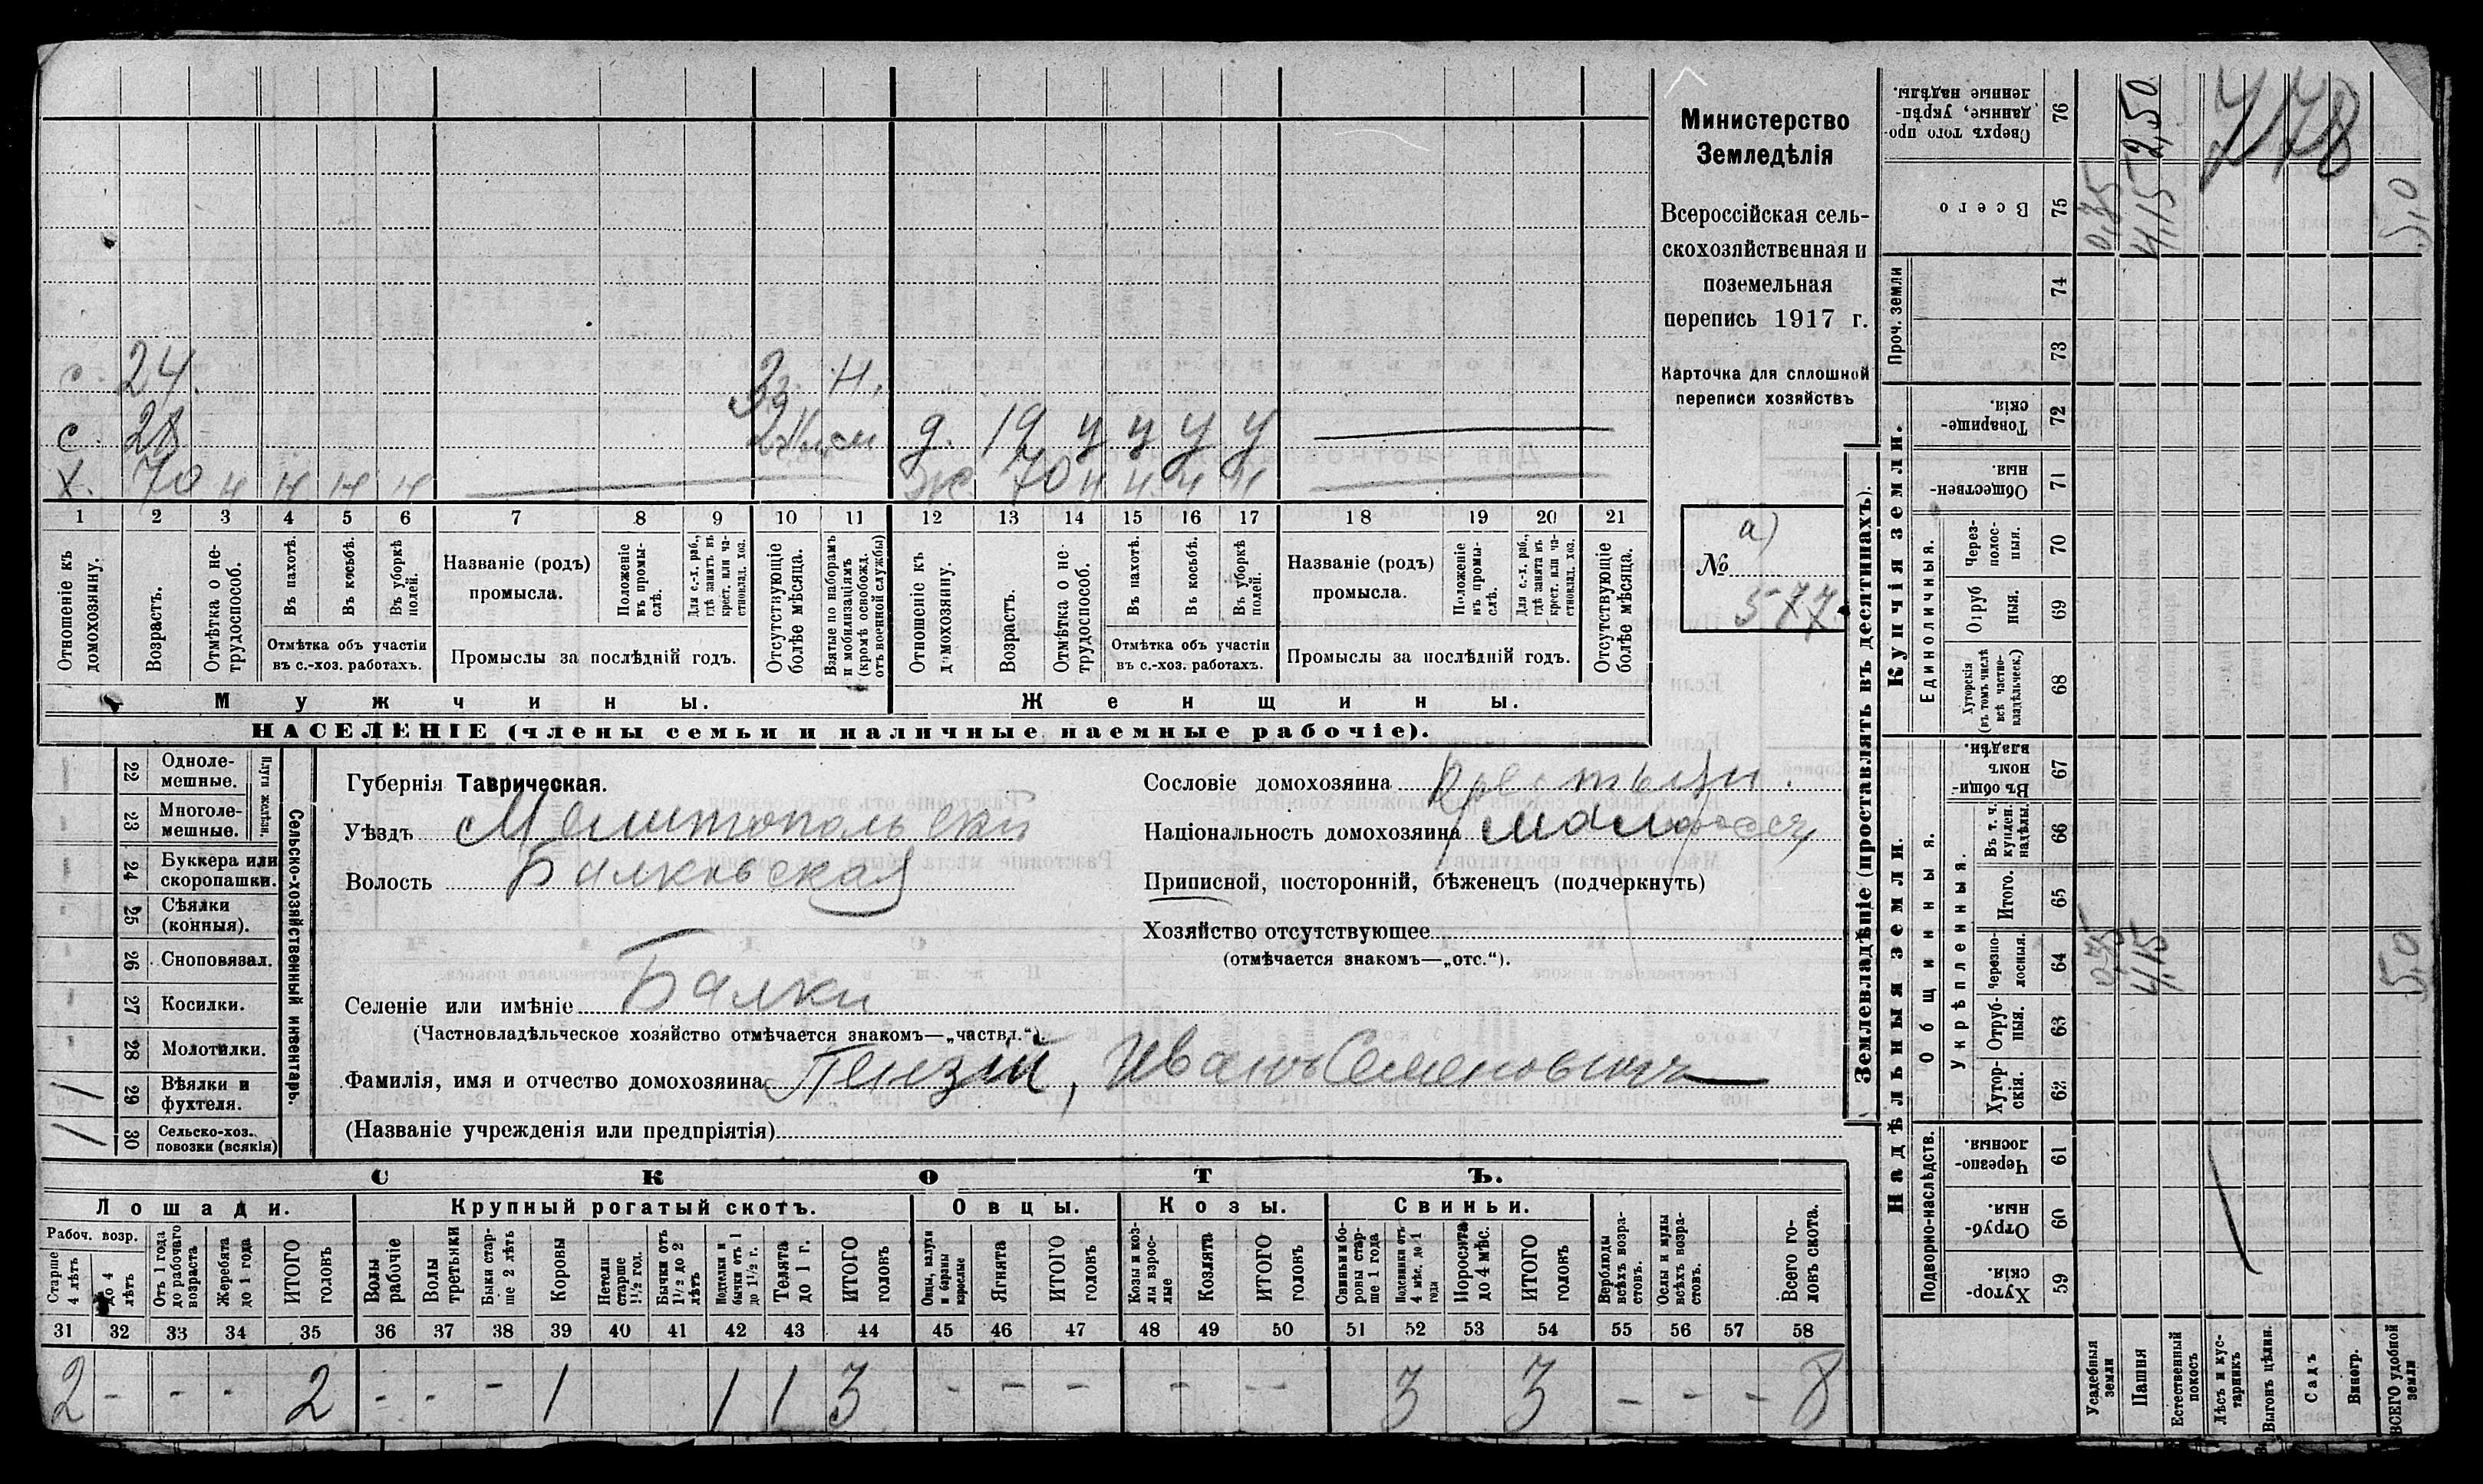 Министерство
Земледѣлія
Всероссійская сель-
скохозяйственная и
поземельная
перепись 1917 г.
Карточка для сплошной
переписи хозяйствъ
а)
№ 577.
с. 24. Н.
с. 28 д. 19 у у у у
х. 70 н н н н ж 70 н н н н
1 2 3 4 5 6 7 8 9 10 11 12 13 14 15 16 17 18 19 20 21
Отношеніе къ домохозяину.
Возрастъ.
Отмѣтка о не-трудоспособ.
Въ пахотѣ.
Въ косьбѣ.
Въ уборкѣ полей.
Отмѣтка объ участіи
въ с.-хоз. работахъ.
Названіе (родъ)
промысла.
Положеніе въ промы-слѣ.
Для с.-х. раб., гдѣ занятъ въ крест. или ча-стновлад. хоз.
Промыслы за послѣдній годъ.
Отсутствующіе болѣе мѣсяца.
Взятые по наборамъ и мобилизаціямъ (кромѣ освобожд. отъ военной службы)
Отношеніе къ домохозяину.
Возрастъ.
Отмѣтка о не-трудоспособ.
Въ пахотѣ.
Въ косьбѣ.
Въ уборкѣ полей.
Отмѣтка объ участіи
въ с.-хоз. работахъ.
Названіе (родъ)
промысла.
Положеніе въ промы-слѣ.
Для с.-х. раб., гдѣ занята въ крест. или ча-стновлад. хоз.
Промыслы за послѣдній годъ.
Отсутствующіе болѣе мѣсяца.
Мужчины. Женщины.
НАСЕЛЕНІЕ (члены семьи и наличные наемные рабочіе).
Сельско-хозяйственный инвентарь.
Плуги желѣзн.
22 Одноле-мешные.
23 Многоле-мешные.
24 Буккера или скоропашки.
25 Сѣялки (конныя).
26 Сноповязал.
27 Косилки.
28 Молотилки.
1 29 Вѣялки и фухтеля.
1 30 Сельско-хоз. повозки (всякія)
Губернія Таврическая.
Уѣздъ Мелитопольскій
Волость Балковская
Селеніе или имѣніе Балки
(Частновладѣльческое хозяйство отмѣчается знакомъ—„частвл.“).
Фамилія, имя и отчество домохозяина Пензій, Иванъ Семеновичъ
(Названіе учрежденія или предпріятія)
Сословіе домохозяина Крестьян.
Національность домохозяина малоросс
Приписной, посторонній, бѣженецъ (подчеркнуть)
Хозяйство отсутствующее
(отмѣчается знакомъ—„отс.“).
СКОТЪ.
Лошади. Крупный рогатый скотъ. Овцы. Козы. Свиньи.
Рабоч. возр.
Старше 4 лѣтъ
до 4 лѣтъ
Отъ 1 года до рабочаго возраста
Жеребята до 1 года
ИТОГО головъ
Волы рабочіе
Волы третьяки
Быки стар-ше 2 лѣтъ
Коровы
Нетели старше 1½ год.
Бычки отъ 1½ до 2 лѣтъ
Нетелки и бычки отъ 1 до 1½ г.
Телята до 1 г.
ИТОГО головъ
Овцы, валухи и бараны взрослые
Ягнята
ИТОГО головъ
Козы и коз-лы взрос-лые
Козлята
ИТОГО головъ
Свиньи и бо-ровы стар-ше 1 года
Подсвинки отъ 4 мѣс. до 1 года
Поросята до 4 мѣс.
ИТОГО головъ
Верблюды всѣхъ возра-стовъ.
Ослы и мулы всѣхъ возра-стовъ.
Всего го-ловъ скота.
31 32 33 34 35 36 37 38 39 40 41 42 43 44 45 46 47 48 49 50 51 52 53 54 55 56 57 58
2 - - - 2 - - - 1 1 1 3 - - - - - 3 3 - - - 8
Землевладѣніе (проставлять въ десятинахъ).
Купчія земли.
Надѣльныя земли.
Сверхъ того про-данные, укрѣп-ленные надѣлы. 76 2,50
Всего 75 0,85 4,15 5,0
778
Проч. земли
74
73
Товарище-скія. 72
Обществен-ныя. 71
Единоличныя.
Через-полос-ныя. 70
Отруб-ныя. 69
Хуторскія (въ томъ числѣ всѣ частно-владѣльческ.) 68
Общинныя.
Въ общин-номъ владѣн. 67
Укрѣпленныя.
Въ т. ч. куплен. надѣлы. 66
Итого. 65
Черезпо-лосныя. 64 0,85 4,15 5,0
Отруб-ныя. 63
Хутор-скія. 62
Подворно-наслѣдств.
Черезпо-лосныя. 61
Отруб-ныя. 60
Хутор-скія. 59
Усадебныя земли
Пашня
Естественный покосъ
Лѣсъ и кус-тарникъ
Выгонъ цѣлин.
Садъ
Виногр.
ВСЕГО удобной земли